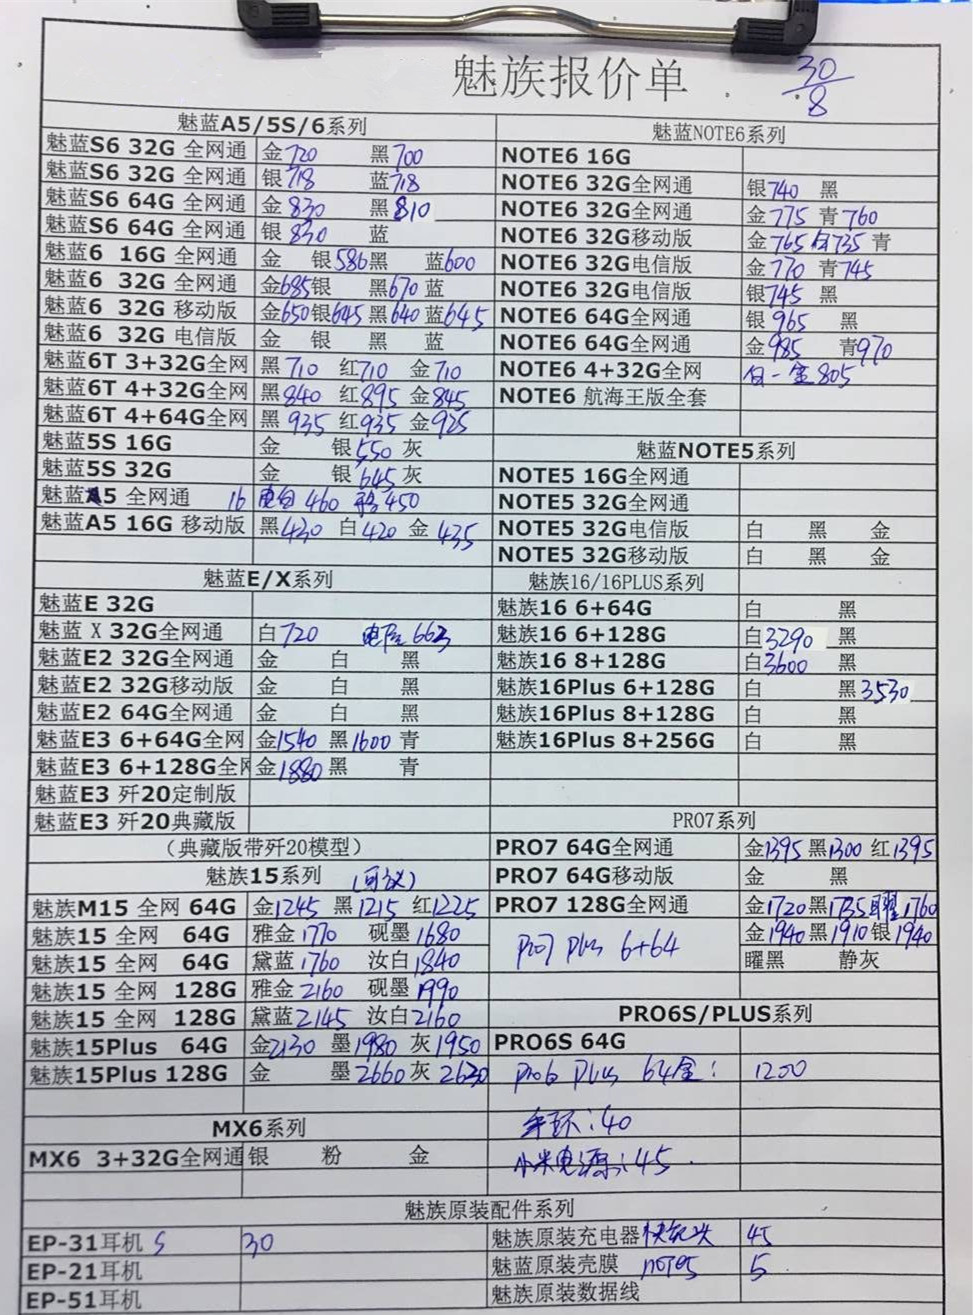 魅族报价单 30/8
魅蓝A5/5S/6系列
魅蓝S6 32G 全网通 金720 黑700
魅蓝S6 32G 全网通 银718 蓝718
魅蓝S6 64G 全网通 金830 黑810
魅蓝S6 64G 全网通 银830 蓝
魅蓝6 16G 全网通 金 银586黑 蓝600
魅蓝6 32G 全网通 金685银 黑670 蓝
魅蓝6 32G 移动版 金650银645 黑640 蓝645
魅蓝6 32G 电信版 金 银 黑 蓝
魅蓝6T 3+32G全网 黑710 红710 金710
魅蓝6T 4+32G全网 黑840 红895 金845
魅蓝6T 4+64G全网 黑935 红935 金925
魅蓝5S 16G 金 银550 灰
魅蓝5S 32G 金 银645 灰
魅蓝A5 全网通 16 460 450
魅蓝A5 16G 移动版 黑430 白420 金435
魅蓝E/X系列
魅蓝E 32G
魅蓝 X 32G全网通 白720 电信663
魅蓝E2 32G全网通 金 白 黑
魅蓝E2 32G移动版 金 白 黑
魅蓝E2 64G全网通 金 白 黑
魅蓝E3 6+64G全网 金1540 黑1600 青
魅蓝E3 6+128G全网 金1880 黑 青
魅蓝E3 歼20定制版
魅蓝E3 歼20典藏版
（典藏版带歼20模型）
魅族15系列 (可议)
魅族M15 全网 64G 金1245 黑1215 红1225
魅族15 全网 64G 雅金1770 砚墨1680
魅族15 全网 64G 黛蓝1760 汝白1840
魅族15 全网 128G 雅金2160 砚墨1990
魅族15 全网 128G 黛蓝2145 汝白2160
魅族15Plus 64G 金2130 墨1980 灰1950
魅族15Plus 128G 金 墨2660 灰2630
MX6系列
MX6 3+32G全网通 银 粉 金
魅蓝NOTE6系列
NOTE6 16G
NOTE6 32G全网通 银740 黑
NOTE6 32G全网通 金775 青760
NOTE6 32G移动版 金765 白735 青
NOTE6 32G电信版 金770 青745
NOTE6 32G电信版 银745 黑
NOTE6 64G全网通 银965 黑
NOTE6 64G全网通 金985 青970
NOTE6 4+32G全网 白-金805
NOTE6 航海王版全套
魅蓝NOTE5系列
NOTE5 16G全网通
NOTE5 32G全网通
NOTE5 32G电信版 白 黑 金
NOTE5 32G移动版 白 黑 金
魅族16/16PLUS系列
魅族16 6+64G 白 黑
魅族16 6+128G 白3290 黑
魅族16 8+128G 白3600 黑
魅族16Plus 6+128G 白 黑3530
魅族16Plus 8+128G 白 黑
魅族16Plus 8+256G 白 黑
PRO7系列
PRO7 64G全网通 金1395 黑1300 红1395
PRO7 64G移动版 金 黑
PRO7 128G全网通 金1720黑1735 曜1760
Pro7 plus 6+64 金1940 黑1910 银1940
曜黑 静灰
PRO6S/PLUS系列
PRO6S 64G
Pro6 plus 64金: 1200
手环:40
小米电源:45
魅族原装配件系列
EP-31耳机 S 30
EP-21耳机
EP-51耳机
魅族原装充电器 快充头 45
魅蓝原装壳膜 note5 5
魅族原装数据线